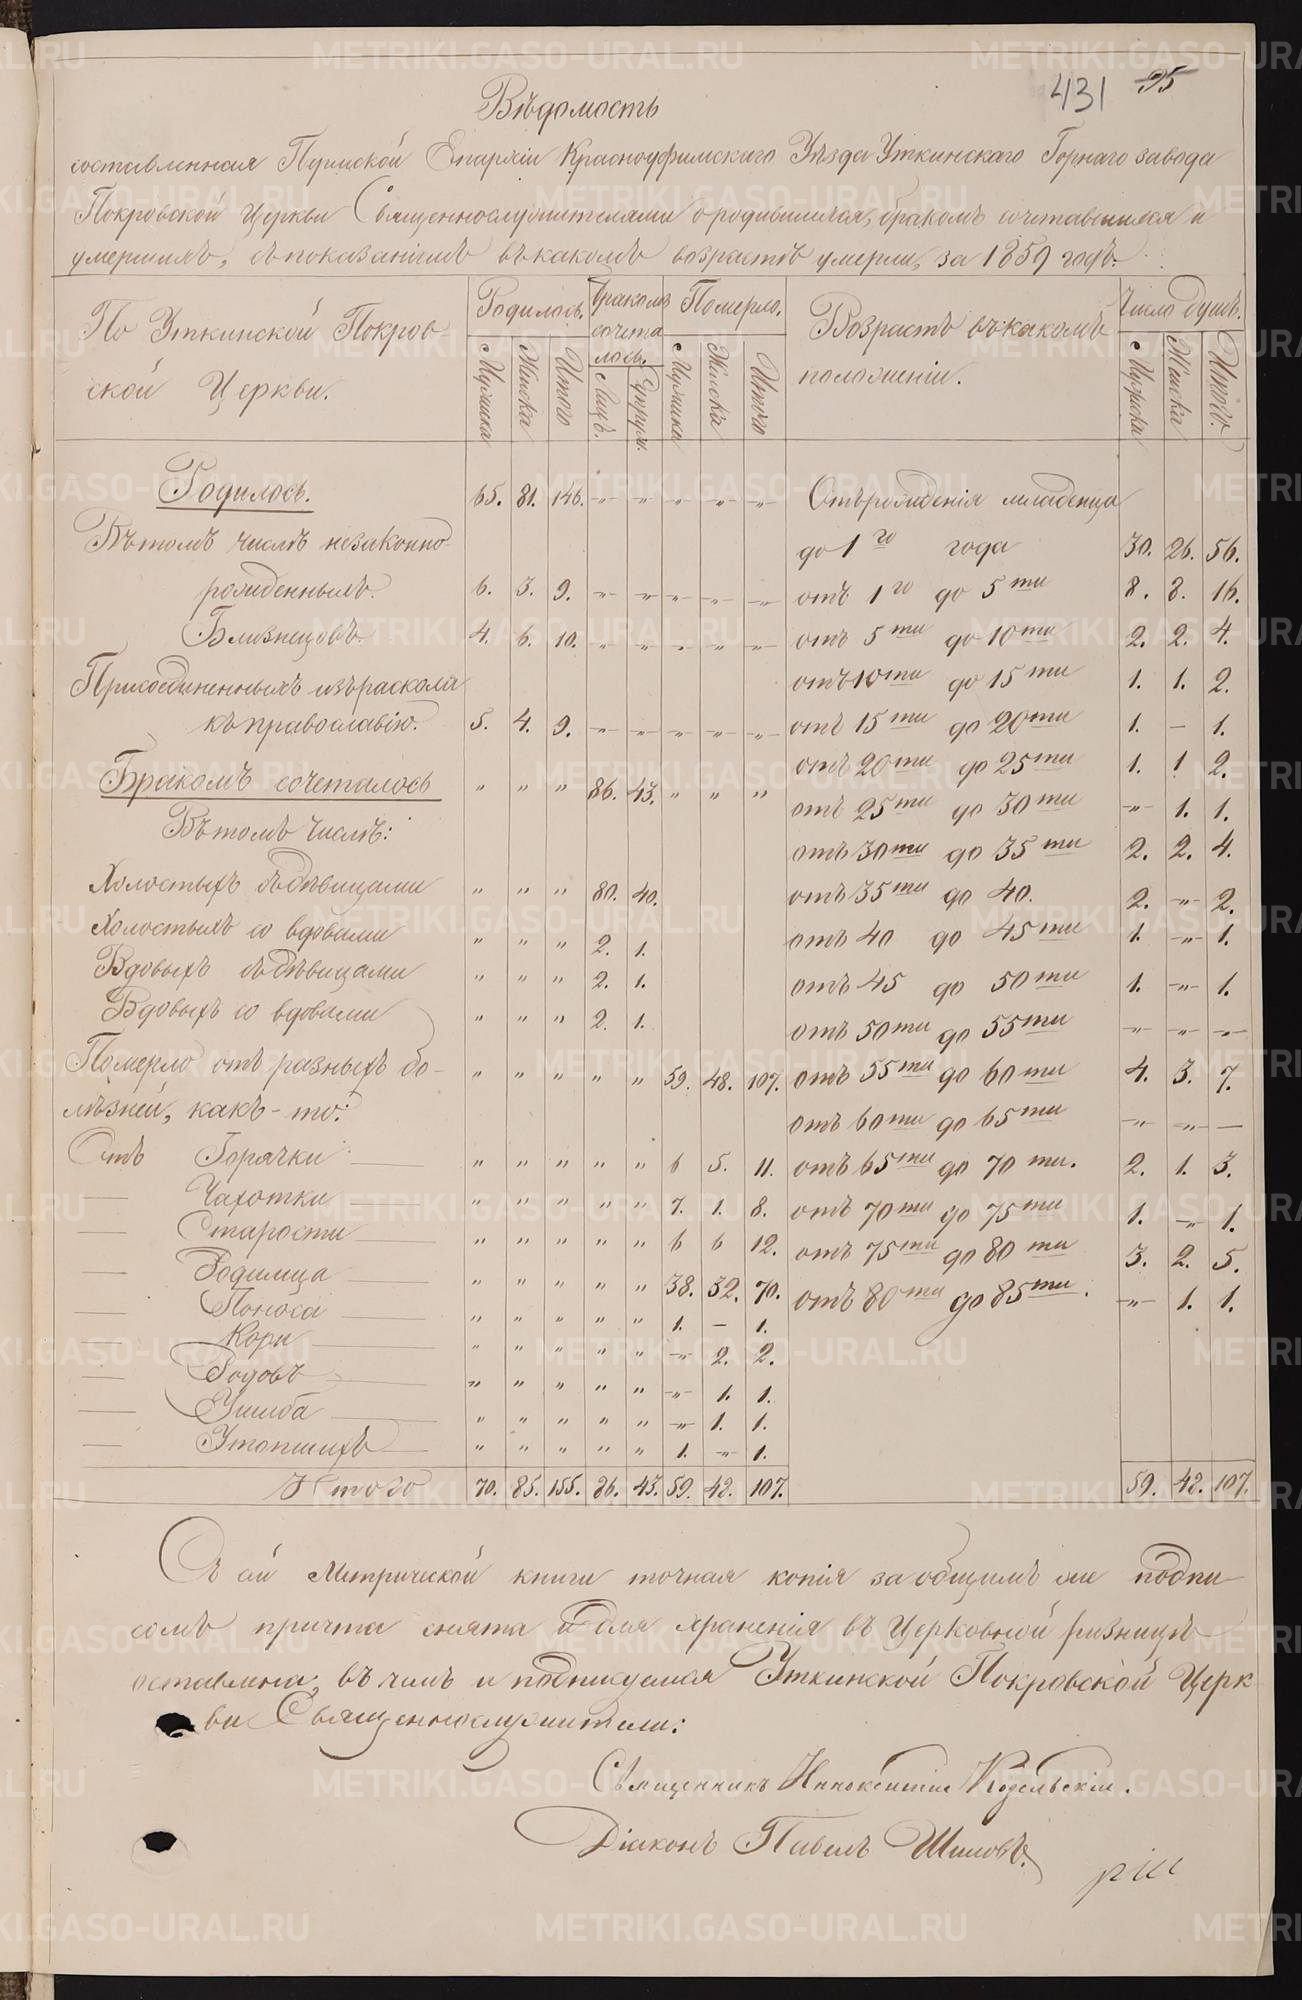 431 95
Вѣдомость
составленная Пермской Епархіи Красноуфимскаго Уѣзда Уткинскаго Горнаго завода
Покровской Церкви Священнослужителями о родившихся, бракомъ сочетавшихся и
умершихъ, съ показаніемъ въ какомъ возрастѣ умерли, за 1859 годъ.
По Уткинской Покров-
ской Церкви.
Родилось. Бракомъ сочета лось. Померло. Возрастъ въ какомъ положеніи. Число душъ.
Мужска Женска Итого Лицъ. Супруж. Мужска Женска Итого Мужска Женска Итого.
Родилось. 65. 81. 146. -„- „ -„- -„- -„- Отъ рожденія младенца
Въ томъ числѣ незаконно- до 1го года 30. 26. 56.
рожденныхъ. 6. 3. 9. -„- -„- -„- -„- -„- отъ 1го до 5ти 8. 8. 16.
Близнецовъ. 4. 6. 10. -„- -„- -„- -„- -„- отъ 5ти до 10ти 2. 2. 4.
Присоединенныхъ изъ раскола отъ 10ти до 15ти 1. 1. 2.
къ православію. 5. 4. 9. -„- -„- -„- -„- -„- отъ 15ти до 20ти 1. - 1.
отъ 20ти до 25ти 1. 1 2.
Бракомъ сочеталось „ „ „ 86. 43. „ „ „ отъ 25ти до 30ти -„- 1. 1.
Въ томъ числѣ: отъ 30ти до 35ти 2. 2. 4.
Холостыхъ съ дѣвицами „ „ „ 80. 40. отъ 35ти до 40. 2. -„- 2.
Холостыхъ со вдовами „ „ „ 2. 1. отъ 40 до 45ти 1. -„- 1.
Вдовыхъ съ дѣвицами „ „ „ 2. 1. отъ 45 до 50ти 1. -„- 1.
Вдовыхъ со вдовами „ „ „ 2. 1. отъ 50ти до 55ти -„- -„- -„-
Померло отъ разныхъ бо- „ „ „ „ „ 59. 48. 107. отъ 55ти до 60ти 4. 3. 7.
лѣзней, какъ-то: отъ 60ти до 65ти -„- -„- -
Отъ Горячки „ „ „ „ „ 6 5. 11. отъ 65ти до 70 ти. 2. 1. 3.
— Чахотки „ „ „ „ „ 7. 1. 8. отъ 70ти до 75ти 1. -„- 1.
— Старости „ „ „ „ „ 6 6 12. отъ 75ти до 80 ти 3. 2. 5.
— Родимца „ „ „ „ „ 38. 32. 70. отъ 80ти до 85ти. -„- 1. 1.
— Поноса „ „ „ „ „ 1. - 1.
— Кори „ „ „ „ „ -„- 2. 2.
— Родовъ „ „ „ „ „ -„- 1. 1.
— Ушиба „ „ „ „ „ -„- 1. 1.
— Утопшихъ „ „ „ „ „ 1. -„- 1.
Итого 70. 85. 155. 86. 43. 59. 48. 107. 59. 48. 107.
Съ сей Метрической книги точная копія за общимъ же подпи-
сомъ причта снята и для храненія въ Церковной ризницѣ
оставлена, въ чемъ и подписуемся Уткинской Покровской Церк-
ви Священнослужители:
Священникъ Иннокентій Козельскій.
Діаконъ Павелъ Шиловъ.
METRIKI.GASO-URAL.RU